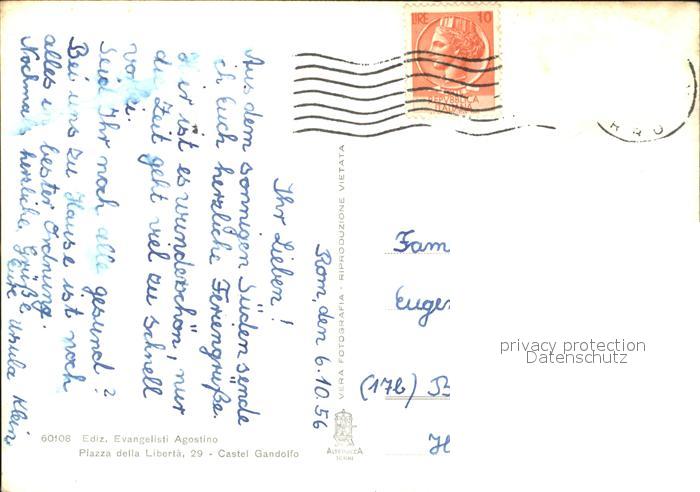 Rom, den 6.10.56
Ihr Lieben!
Aus dem sonnigen Süden sende
ich Euch herzliche Feriengrüße.
Hier ist es wunderschön, nur
die Zeit geht viel zu schnell
vorbei.
Seid Ihr noch alle gesund?
Bei uns zu Hause ist noch
alles in bester Ordnung.
Nochmals herzliche Grüße
Eure Ursula Klein
60108 Ediz. Evangelisti Agostino
Piazza della Libertà, 29 - Castel Gandolfo
VERA FOTOGRAFIA - RIPRODUZIONE VIETATA
ALTEROCCA
TERNI
LIRE 10
REPVBBLICA
ITALIANA
Fam
Eugen
(17b) B
H
privacy protection
Datenschutz